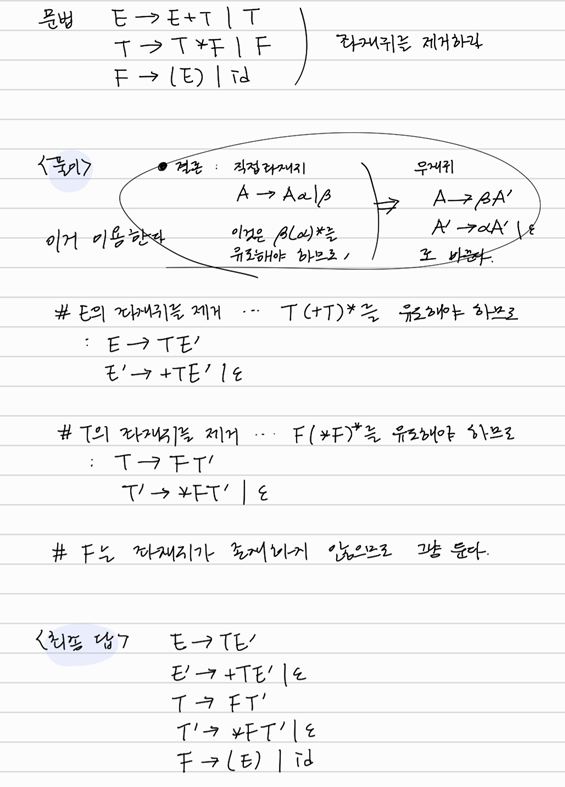 문법 E → E+T | T
T → T*F | F
F → (E) | id
좌재귀를 제거하라
<풀이> ● 결론 : 직접좌재귀 우재귀
A → Aα|β ⇒ A → βA'
이거 이용한다 이것은 β(α)*를 A' → αA' | ε
유도해야 하므로, 로 바꾼다.
# E의 좌재귀를 제거 ... T(+T)*를 유도해야 하므로
: E → TE'
E' → +TE' | ε
# T의 좌재귀를 제거 ... F(*F)*를 유도해야 하므로
: T → FT'
T' → *FT' | ε
# F는 좌재귀가 존재하지 않으므로 그냥 둔다.
<최종 답> E → TE'
E' → +TE' | ε
T → FT'
T' → *FT' | ε
F → (E) | id